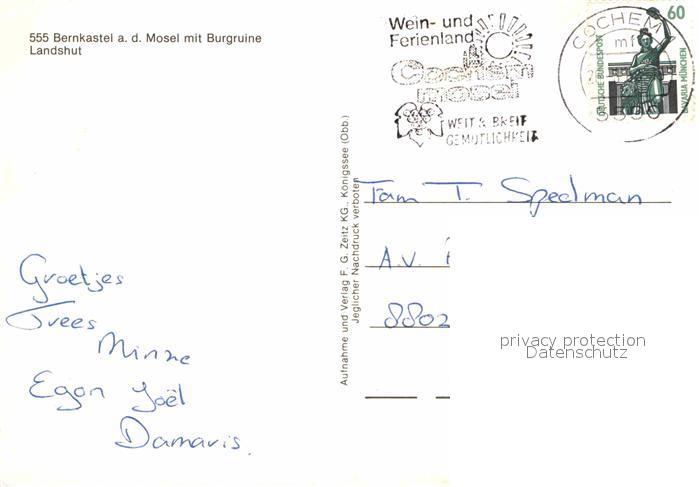 555 Bernkastel a. d. Mosel mit Burgruine
Landshut
Wein- und
Ferienland
Cochem
mosel
WEIT & BREIT
GEMÜTLICHKEIT
COCHEM
mf
60
DEUTSCHE BUNDESPOST
BAVARIA MÜNCHEN
Aufnahme und Verlag F. G. Zeitz KG., Königssee (Obb.)
Jeglicher Nachdruck verboten
Fam T. Speelman
A.V.
8802
privacy protection
Datenschutz
Groetjes
Trees
Minne
Egon Joël
Damaris.